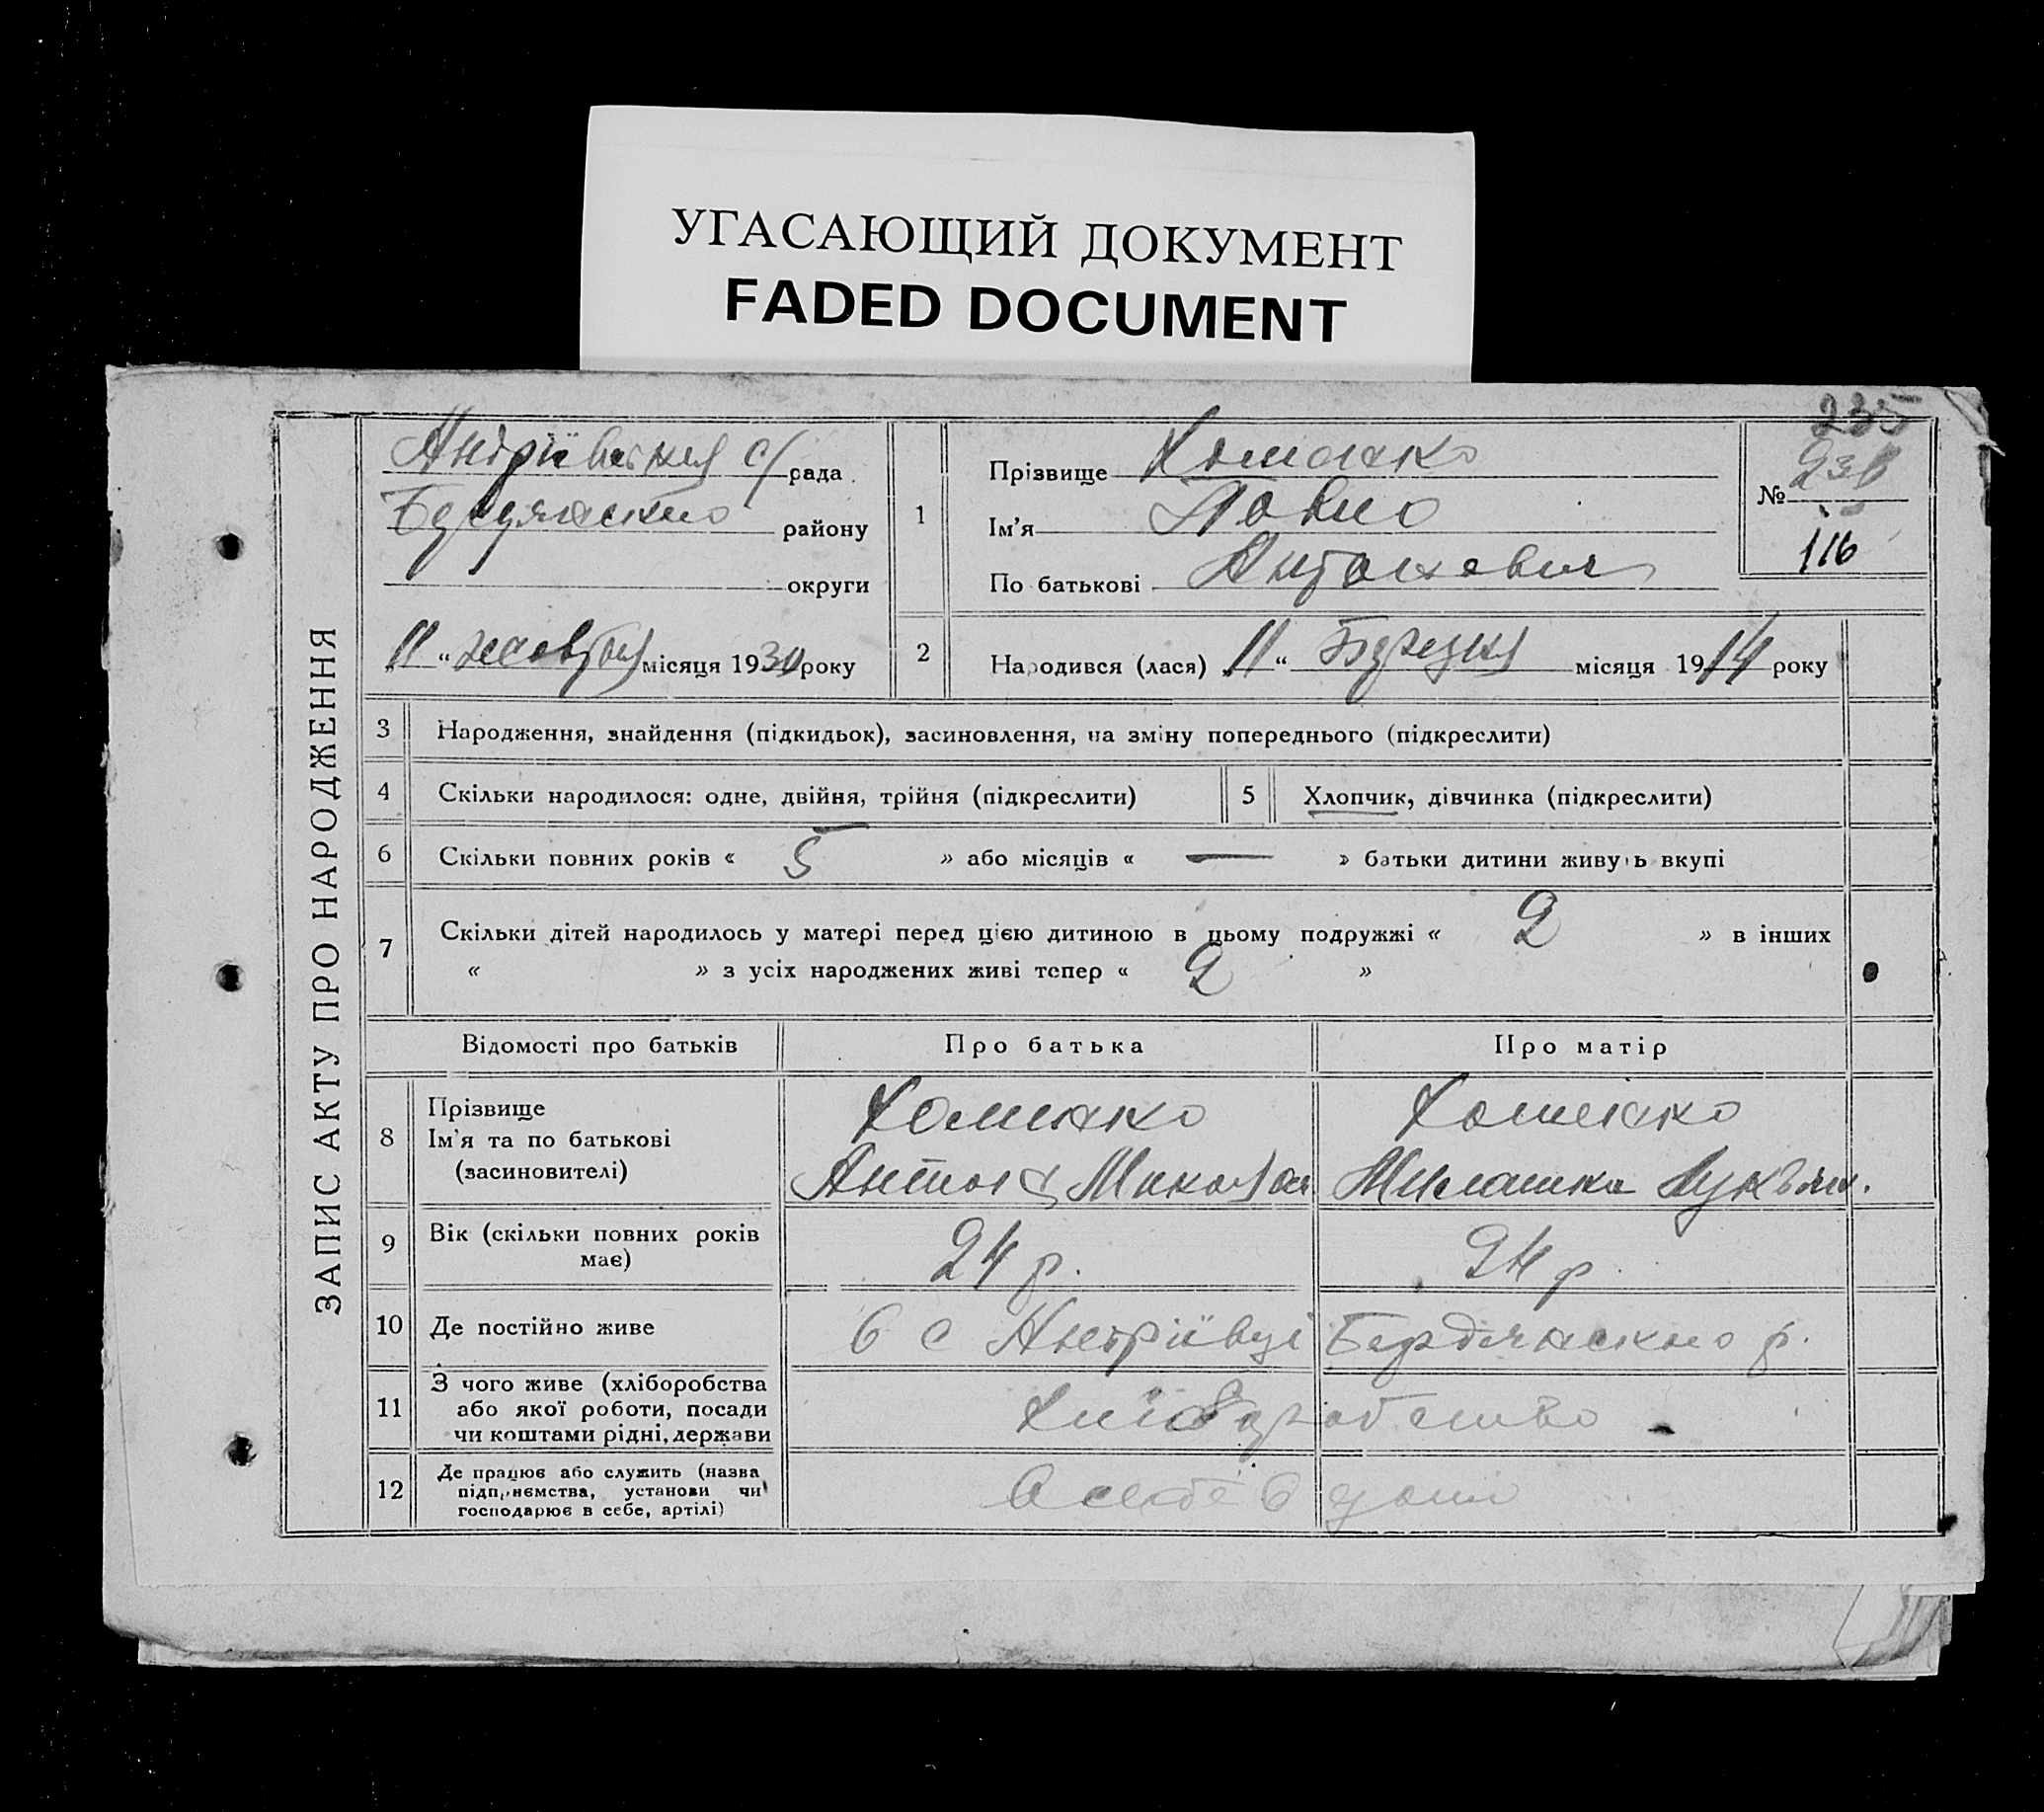 УГАСАЮЩИЙ ДОКУМЕНТ
FADED DOCUMENT
ЗАПИС АКТУ ПРО НАРОДЖЕННЯ
Андріївська с/рада
Бердянського району
округи
11 " жовтня місяця 1930 року
1
Прізвище Хоменко
Ім'я Павло
По батькові Антонович
235
№
116
2
Народився (лася) 11 " Березня місяця 1914 року
3 Народження, знайдення (підкидьок), засиновлення, на зміну попереднього (підкреслити)
4 Скільки народилося: одне, двійня, трійня (підкреслити)
5 Хлопчик, дівчинка (підкреслити)
6 Скільки повних років « 5 » або місяців « — » батьки дитини живуть вкупі
7 Скільки дітей народилось у матері перед цією дитиною в цьому подружжі « 2 » в інших
« » з усіх народжених живі тепер « 2 »
Відомості про батьків Про батька Про матір
8 Прізвище
Ім'я та по батькові
(засиновителі)
Хоменко
Антон Микол
Хоменко
Милашка Лукъян.
9 Вік (скільки повних років
має)
24 р. 24 р
10 Де постійно живе в с Андріївці Бердянського р.
11 З чого живе (хліборобства
або якої роботи, посади
чи коштами рідні, держави
Хліборобство
12 Де працює або служить (назва
підприємства, установи чи
господарює в себе, артілі)
в себе в